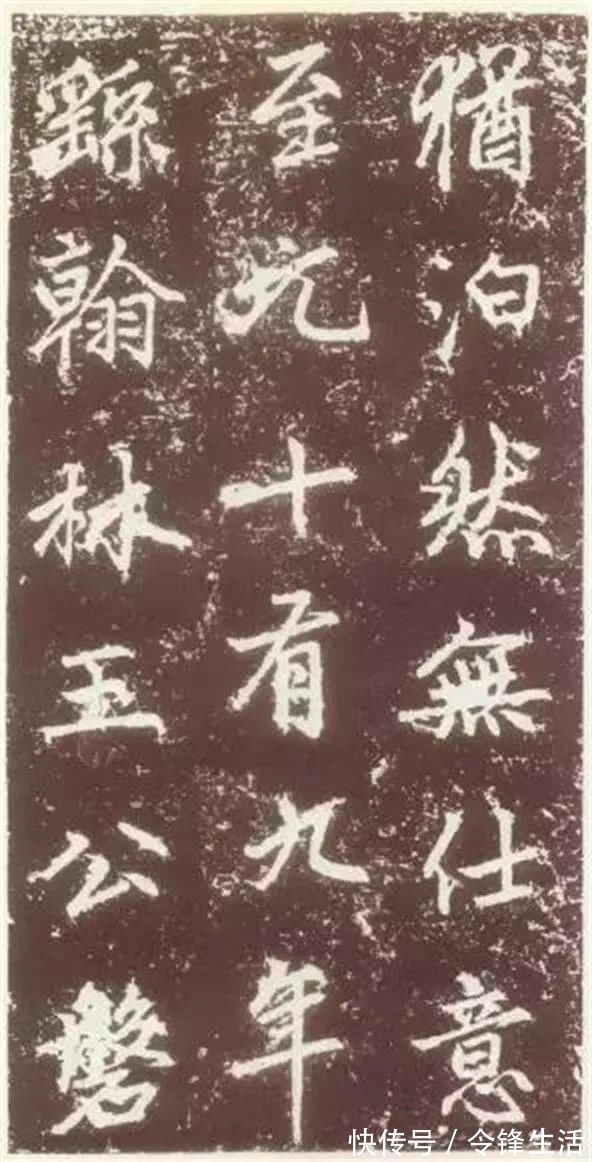 猶泊然無仕意
至元十有九年
繇翰林王公磐
快传号 / 令锋生活